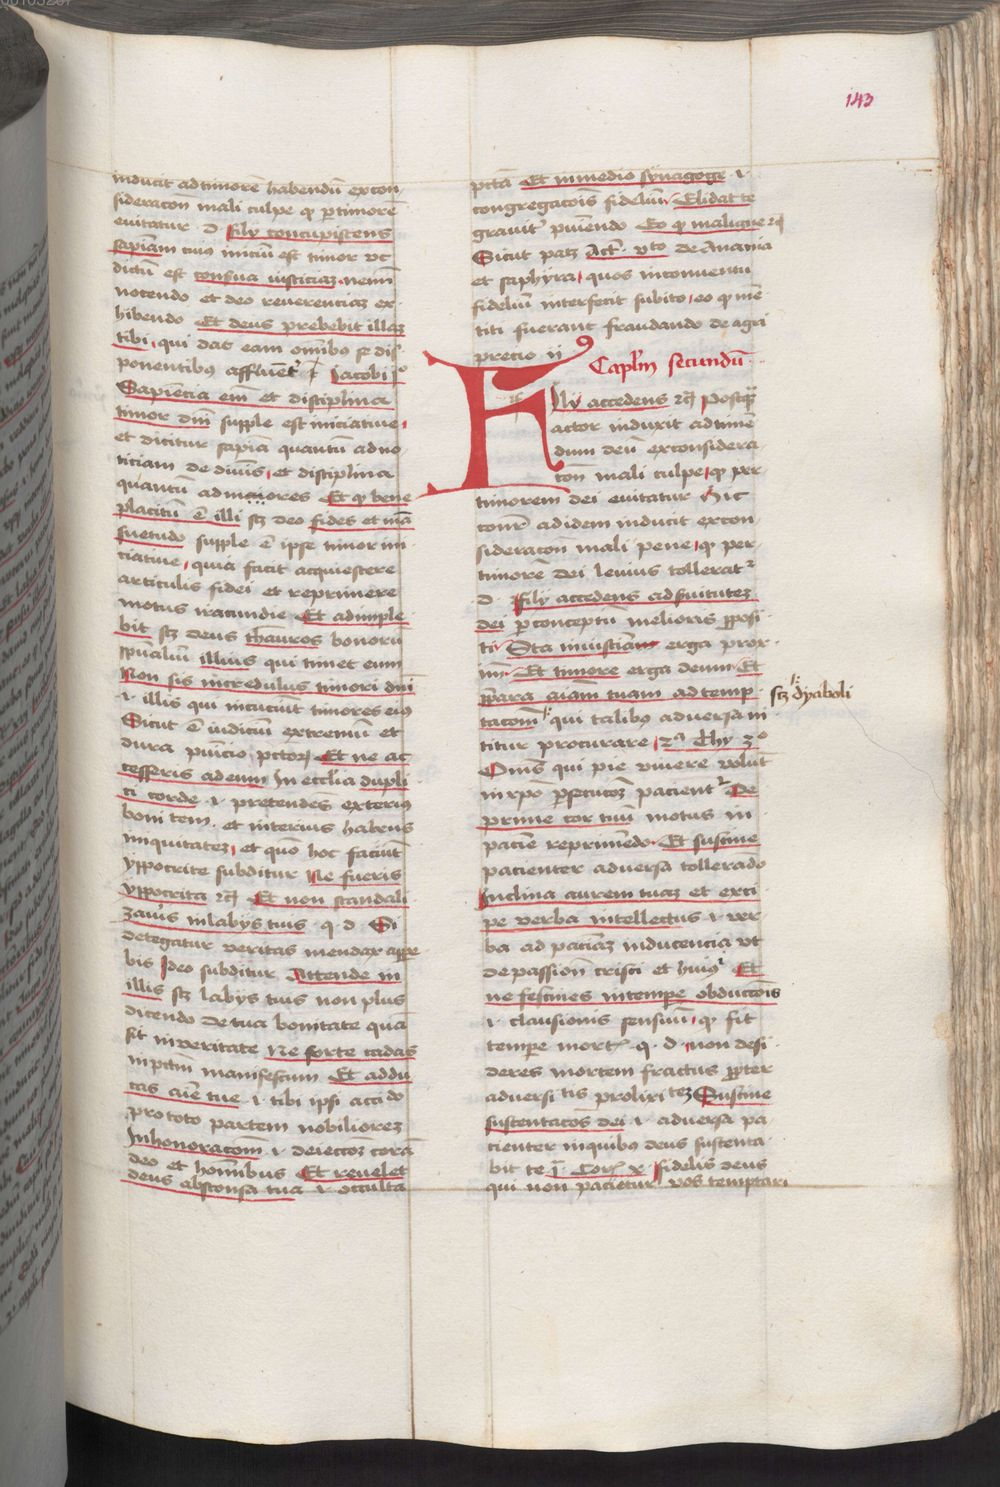 143
inducit ad timorē habendū ex con
sideracōn mali culpe qͥ p timorē
euitatur d fily concupiscens
sapiam cuius iniciū est timor ut
dictū est conserua iusticiaʒ nemī
nocendo et deo reuerenciaʒ ex
hibendo Et deus prebebit illaʒ
tibi qui dat eam om̄ibus se dis
ponentibus affluēt Jacobi jº
Sapiēcia em̄ et disciplina
timor dm̄ supple est iniciatiue
et dicitur sapiā quantū ad no
titiam de diuis et disciplina
quantū ad mores Et qͥ bene
placitū ē illi sʒ deo fides et mā
suetudo supple ē ipse timor ini
ciatiue quia facit acquiescere
articulis fidei et reprimere
motus iracundie Et adimple
bit sʒ deus thauros bonorū
spūaliū illius qui timet eum
Non sis incredulus timori dni
i illis qui incuciūt timores eius
Sicut ē iudiciū extremū et
dura puicio pctoꝝ Et ne ac
cesseris ad eum In ecclia dupli
ci corde i pretendes exterius
boni tem et interius habens
iniquitateʒ et quō hoc faciūt
ypocrite subditur Ne fueris
ypocrita ⁊c Et non scandali
zaris in labys tuis q d Si
detegatur veritas mendax appe
bis Ideo subditur Attende in
illis sʒ labys tuis non plus
dicendo de tua bonitate quā
sit in veritate Ne forte cadas
in pctm̄ manifestum Et addu
cas aīe tue i tibi ipsi acc̄do
pro toto partem nobilioreʒ
Inhonoracōm i deieccōʒ corā
deo et hoīnibus Et reuelet
deus absconsa tua i occulta
pctā Et in medio synagoge i
congregacōis fideliū Elidat te
grauit puiendo Eo qͥ maligne ⁊c
Sicut patʒ Act vto de Anania
et saphyra quos in conuentu
fideliū interfecit subito eo qͥ mē
titi fuerant fraudando de agri
precio ij
Caplm̄ secundū
Fily accedens ⁊c Postqͣ
actor induxit ad timē
dum deū ex considera
cōn mali culpe qͥ per
timorem dei euitatur Hic
conr̄ ad idem inducit ex con
sideracōn mali pene qͥ per
timorē dei leuius tollerat
d Fily accedens ad suituteʒ
dei p conceptū melioris pposi
ti Sta in iusticiam erga prox
im̄ Et timore erga deum Et
ppara aīam tuam ad temp
tacom̄ qui talibus aduersa ni
titur procurare 2ª Thy 3º
Oms̄ qui pie viuere volūt
in xp̄o psecucōʒ pacient De
prime cor tuū motus in
paciē reprimēdo Et sustine
pacienter aduersa tollerādo
Inclina aurem tuaʒ et exci
pe verba intellectus i ver
ba ad paciaʒ inducencia vt
de passion̄ cristi et huius Et
ne festines in tempe obductōis
i clausionis sensuū qͥ fit
tempe mortʒ q d non desi
deres mortem fractus ppter
aduersi tis prolixi teʒ Sustine
sustentacōs dei i aduersa pa
cienter in quibus deus sustenta
bit te j Cor x fidelis deus
qui non pacietur vos temptari
sʒ dyaboli